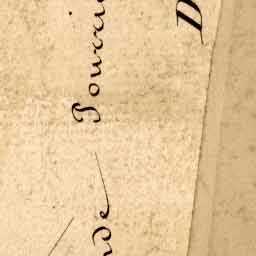 nde Pourri
D